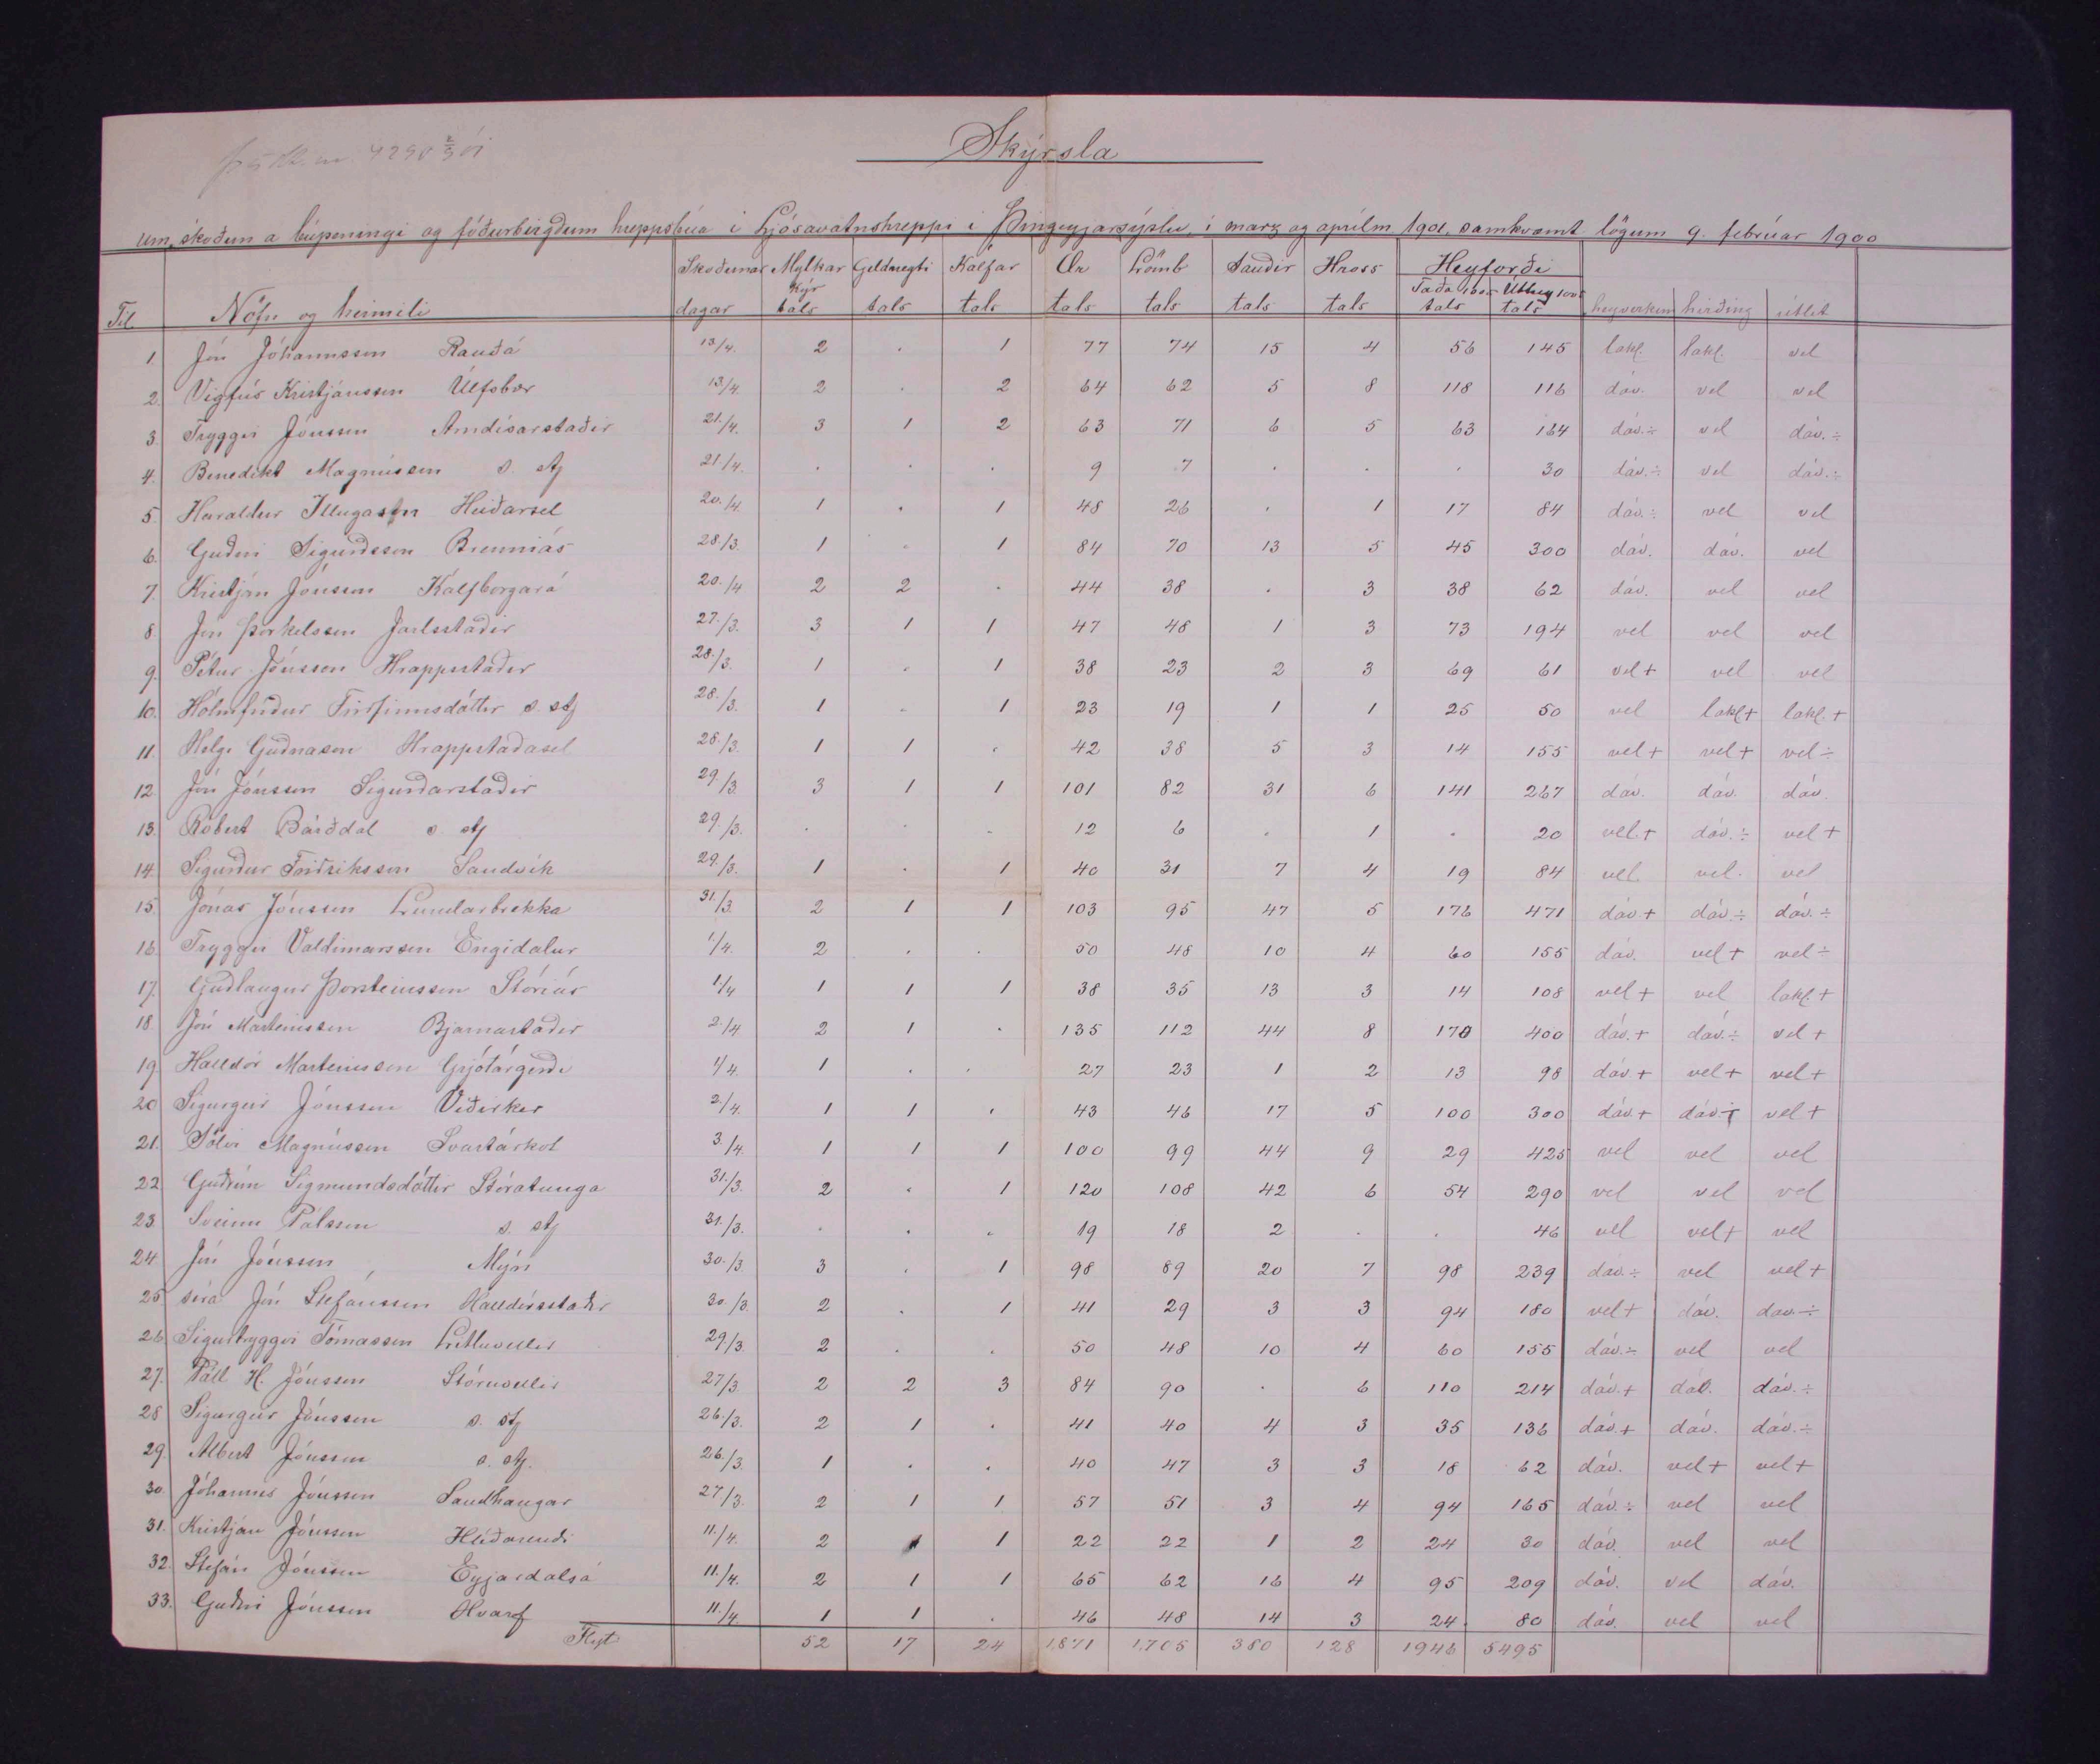 Skýrsla
um skoðun á búpeningi og fóðurbirgðum hreppsbúa í Ljósavatnshreppi í Þingeyjarsýslu, í marz og aprílm 1901. samkvæmt lögum 9. febrúar 1900
Tal Nöfn og heimili Skoðunar dagar Mylkar kýr tals Geldneyti tals Kálfar tals Ær tals Lömb tals Sauðir tals Hross tals Heyforði Taða tals Úthey tals heyverkun hirðing útlit
1. Jón Jóhannsson Rauðá 13/4. 2 . 1 77 74 15 4 56 145 lakl. lakl. vel
2. Vigfús Kristjánsson Úlfsbær 13/4. 2 . 2 64 62 5 8 118 116 dáv. vel vel
3. Tryggvi Jónsson Arndísarstaðir 21./4. 3 1 2 63 71 6 5 63 164 dáv.÷ vel dáv.÷
4. Benedikt Magnússon s. st 21/4. . . . 9 7 . . . 30 dáv.÷ vel dáv.÷
5. Haraldur Illugason Heiðarsel 20./4 1 . 1 48 26 . 1 17 84 dáv.÷ vel vel
6. Guðni Sigurðsson Brenniás 28./3. 1 . 1 84 70 13 5 45 300 dáv. dáv. vel
7. Kristján Jónsson Kálfborgará 20./4 2 2 . 44 38 . 3 38 62 dáv. vel vel
8. Jón Þorkelsson Jarlsstaðir 27./3. 3 1 1 47 48 1 3 73 194 vel vel vel
9. Pétur Jónsson Hrappsstaðir 28./3. 1 . 1 38 23 2 3 69 61 vel+ vel vel
10. Hólmfríður s. st 28./3. 1 . 1 23 19 1 1 25 50 vel lakl+ lakl.+
11. Helgi Guðnason Hrappstaðasel 28./3. 1 1 . 42 38 5 3 14 155 vel+ vel+ vel÷
12. Jón Jónsson Sigurðarstaðir 29./3. 3 1 1 101 82 31 6 141 267 dáv. dáv. dáv.
13. Róbert Bárðdal s. st 29./3. . . . 12 6 . 1 . 20 vel.+ dáv.÷ vel+
14. Sigurður Friðriksson Sandvík 29./3. 1 . 1 40 31 7 4 19 84 vel. vel. vel
15. Jónas Jónsson Lundarbrekka 31./3. 2 1 1 103 95 47 5 176 471 dáv+ dáv.÷ dáv.÷
16. Tryggvi Valdimarsson Engidalur 1/4. 2 . . 50 48 10 4 60 155 dáv. vel+ vel÷
17. Guðlaugur Þorsteinsson Stóriás 1/4 1 1 1 38 35 13 3 14 108 vel+ vel lakl.+
18. Jón Marteinsson Bjarnastaðir 2./4 2 1 . 135 112 44 8 170 400 dáv.+ dáv.÷ vel+
19. Halldór Marteinsson Grjótárgerði 1/4. 1 . . 27 23 1 2 13 98 dáv+ vel+ vel+
20 Sigurgeir Jónsson Víðirker 2./4. 1 1 . 43 46 17 5 100 300 dáv+ dáv÷ vel+
21. Sölvi Magnússon Svartárkot 3./4. 1 1 1 100 99 44 9 29 425 vel vel vel
22 Guðrún Sigmundsdóttir Stóratunga 31./3. 2 . 1 120 108 42 6 54 290 vel vel vel
23 Sveinn Pálsson s. st 31./3. . . . 19 18 2 . . 46 vel vel+ vel
24 Jón Jónsson Mýri 30./3. 3 . 1 98 89 20 7 98 239 dáv÷ vel vel+
25 séra Jón Stefánsson Halldórsstaðir 30./3. 2 . 1 41 29 3 3 94 180 vel+ dáv. dáv.÷
26. Sigurtryggvi Tómasson Litluvellir 29/3. 2 . . 50 48 10 4 60 155 dáv.÷ vel vel
27. Páll H. Jónsson Stóruvellir 27/3. 2 2 3 84 90 . 6 110 214 dáv.+ dáv. dáv.÷
28 Sigurgeir Jónsson s. st 26./3. 2 1 . 41 40 4 3 35 136 dáv.+ dáv. dáv.÷
29. Albert Jónsson s. st. 26./3. 1 . . 40 47 3 3 18 62 dáv. vel+ vel+
30. Jóhannes Jónsson Sandhaugar 27/3. 2 1 1 57 51 3 4 94 165 dáv.÷ vel vel
31. Kristján Jónsson Hlíðarendi 11./4. 2 1 22 22 1 2 24 30 dáv. vel vel
32. Stefán Jónsson Eyjardalsá 11./4. 2 1 1 65 62 16 4 95 209 dáv. vel dáv.
33. Guðni Jónsson Hvarf 11./4. 1 1 . 46 48 14 3 24 80 dáv. vel vel
Flyt 52 17 24 1,871 1,705 380 128 1946 5495